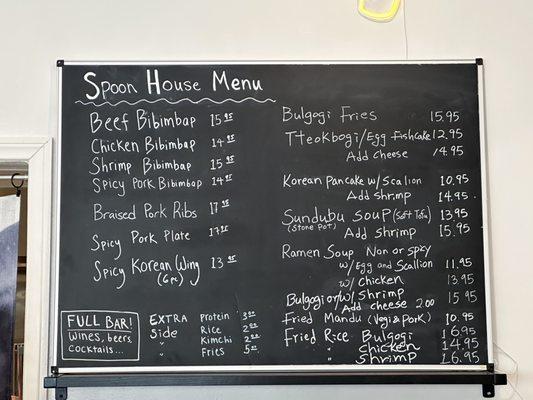 Spoon House Menu
Beef Bibimbap 15.95
Chicken Bibimbap 14.95
Shrimp Bibimbap 15.95
Spicy Pork Bibimbap 14.95
Braised Pork Ribs 17.95
Spicy Pork Plate 17.95
Spicy Korean Wing 13.95
(6pc)
FULL BAR!
Wines, beers,
Cocktails...
EXTRA Protein 3.00
Side Rice 2.00
" Kimchi 2.00
" Fries 5.00
Bulgogi Fries 15.95
Tteokbogi/Egg Fishcake 12.95
Add cheese 14.95
Korean Pancake w/ Scalion 10.95
Add shrimp 14.95
Sundubu Soup (Soft Tofu) 13.95
(Stone Pot) Add shrimp 15.95
Ramen Soup Non or spicy
w/ Egg and Scallion 11.95
w/ Chicken 13.95
Bulgogi or w/ Shrimp 15.95
Add cheese 2.00
Fried Mandu (Vegi & Pork) 10.95
Fried Rice Bulgogi 16.95
" Chicken 14.95
" Shrimp 16.95